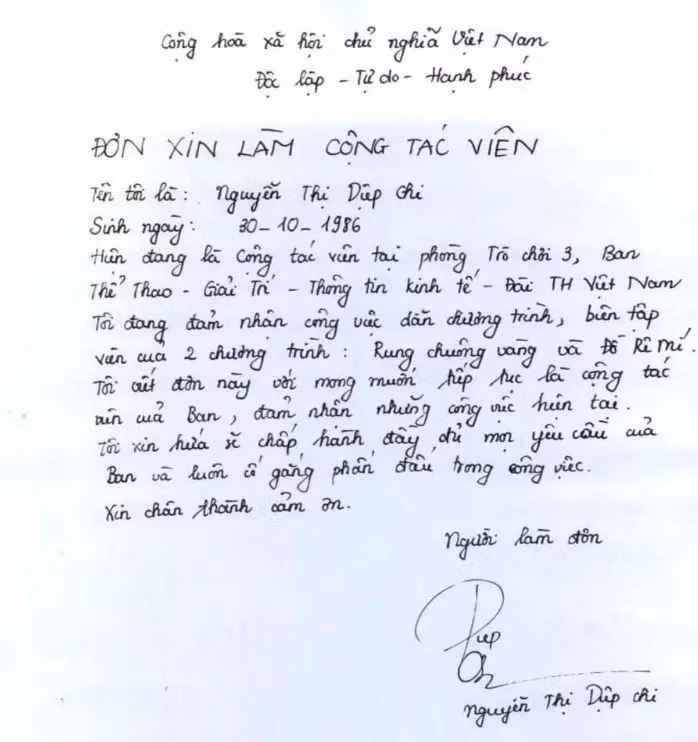 Cộng hoà xã hội chủ nghĩa Việt Nam
Độc lập - Tự do - Hạnh phúc
ĐƠN XIN LÀM CỘNG TÁC VIÊN
Tên tôi là: Nguyễn Thị Diệp Chi
Sinh ngày: 30-10-1986
Hiện đang là Cộng tác viên tại phòng Trò chơi 3, Ban
Thể Thao - Giải Trí - Thông tin kinh tế - Đài TH Việt Nam
Tôi đang đảm nhận công việc dẫn chương trình, biên tập
viên của 2 chương trình: Rung chuông vàng và Đồ Rê Mí.
Tôi viết đơn này với mong muốn tiếp tục là cộng tác
viên của Ban, đảm nhận những công việc hiện tại.
Tôi xin hứa sẽ chấp hành đầy đủ mọi yêu cầu của
Ban và luôn cố gắng phấn đấu trong công việc.
Xin chân thành cảm ơn.
Người làm đơn
Diep
Chi
Nguyễn Thị Diệp Chi